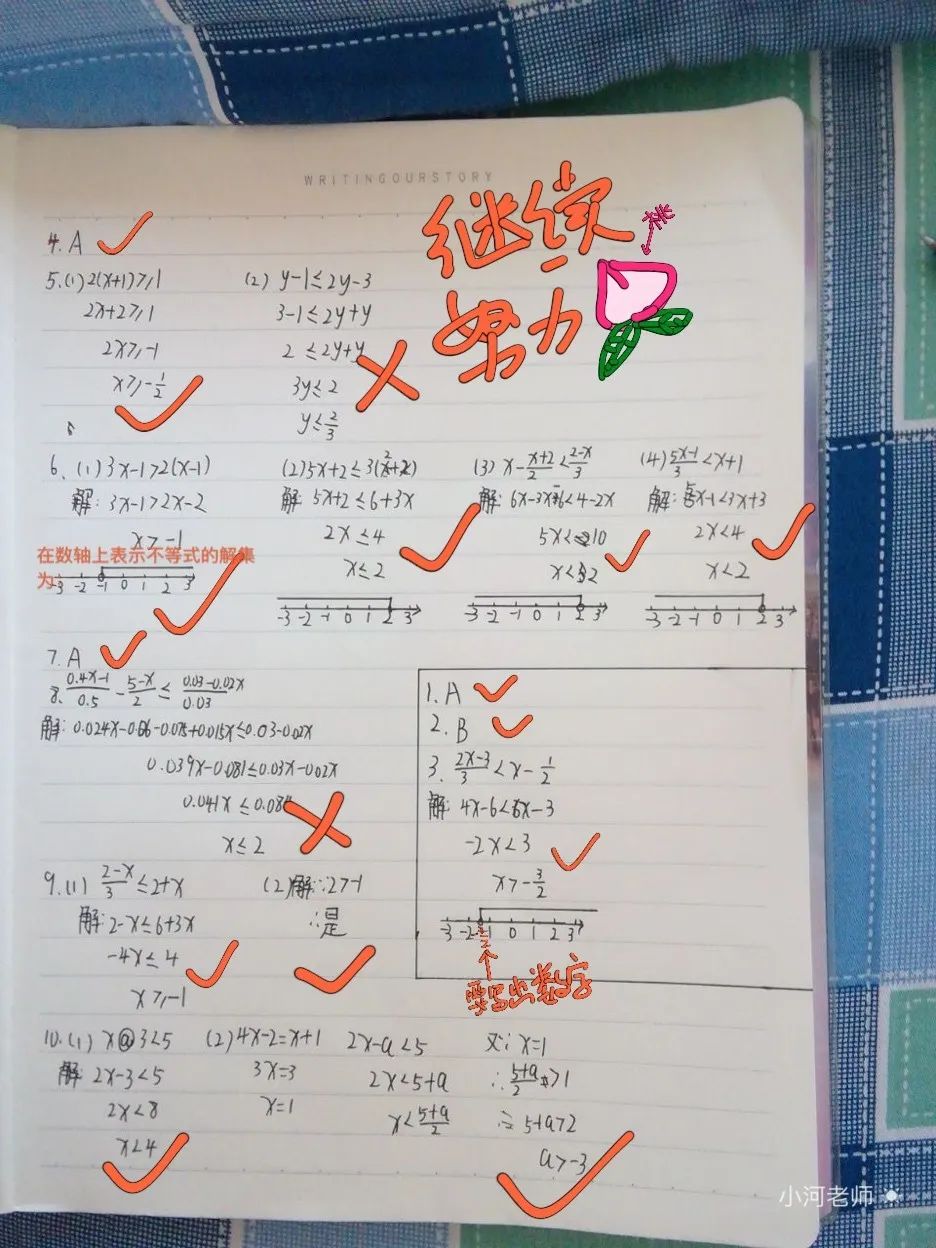 WRITINGOURSTORY
继续
努力
奖
4. A
5.(1) 2(x+1)≥1
2x+2≥1
2x≥-1
x≥-1/2
(2) y-1≤2y-3
3-1≤2y+y
2≤2y+y
3y≤2
y≤2/3
6、(1) 3x-1>2(x-1)
解: 3x-1>2x-2
x>-1
在数轴上表示不等式的解集
为:
-3 -2 -1 0 1 2 3
(2) 5x+2≤3(2+x)
解 5x+2≤6+3x
2x≤4
x≤2
-3 -2 -1 0 1 2 3
(3) x-(x+2)/2<(2-x)/3
解: 6x-3x-6<4-2x
5x<10
x<2
-3 -2 -1 0 1 2 3
(4) (5x-1)/3<x+1
解: 5x-1<3x+3
2x<4
x<2
-3 -2 -1 0 1 2 3
7. A
8. (0.4x-1)/0.5-(5-x)/2≤(0.03-0.02x)/0.03
解: 0.024x-0.06-0.075+0.015x≤0.03-0.02x
0.039x-0.081≤0.03x-0.02x
0.041x≤0.084
x≤2
9.(1) (2-x)/3≤2+x
解: 2-x≤6+3x
-4x≤4
x≥-1
(2) 解: ∵2>-1
∴是
1. A
2. B
3. (2x-3)/3<x-1/2
解: 4x-6<6x-3
-2x<3
x>-3/2
-3 -2 -3/2 -1 0 1 2 3
要写出数字
10.(1) x@3<5
解 2x-3<5
2x<8
x<4
(2) 4x-2=x+1
3x=3
x=1
2x-a<5
2x<5+a
x<(5+a)/2
又∵x=1
∴(5+a)/2>1
∴5+a>2
a>-3
小河老师